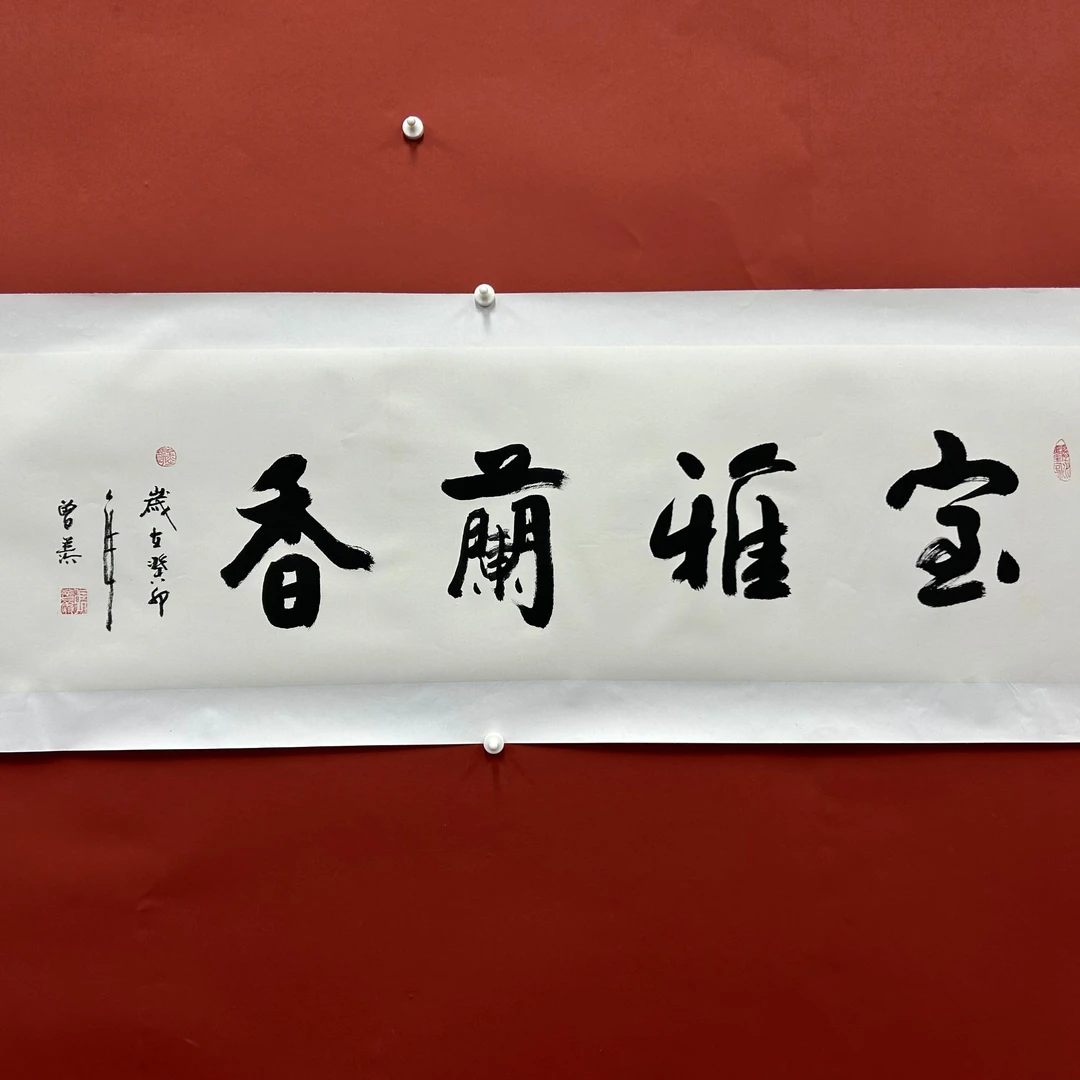 室雅蘭香
歲在癸卯
年
曾